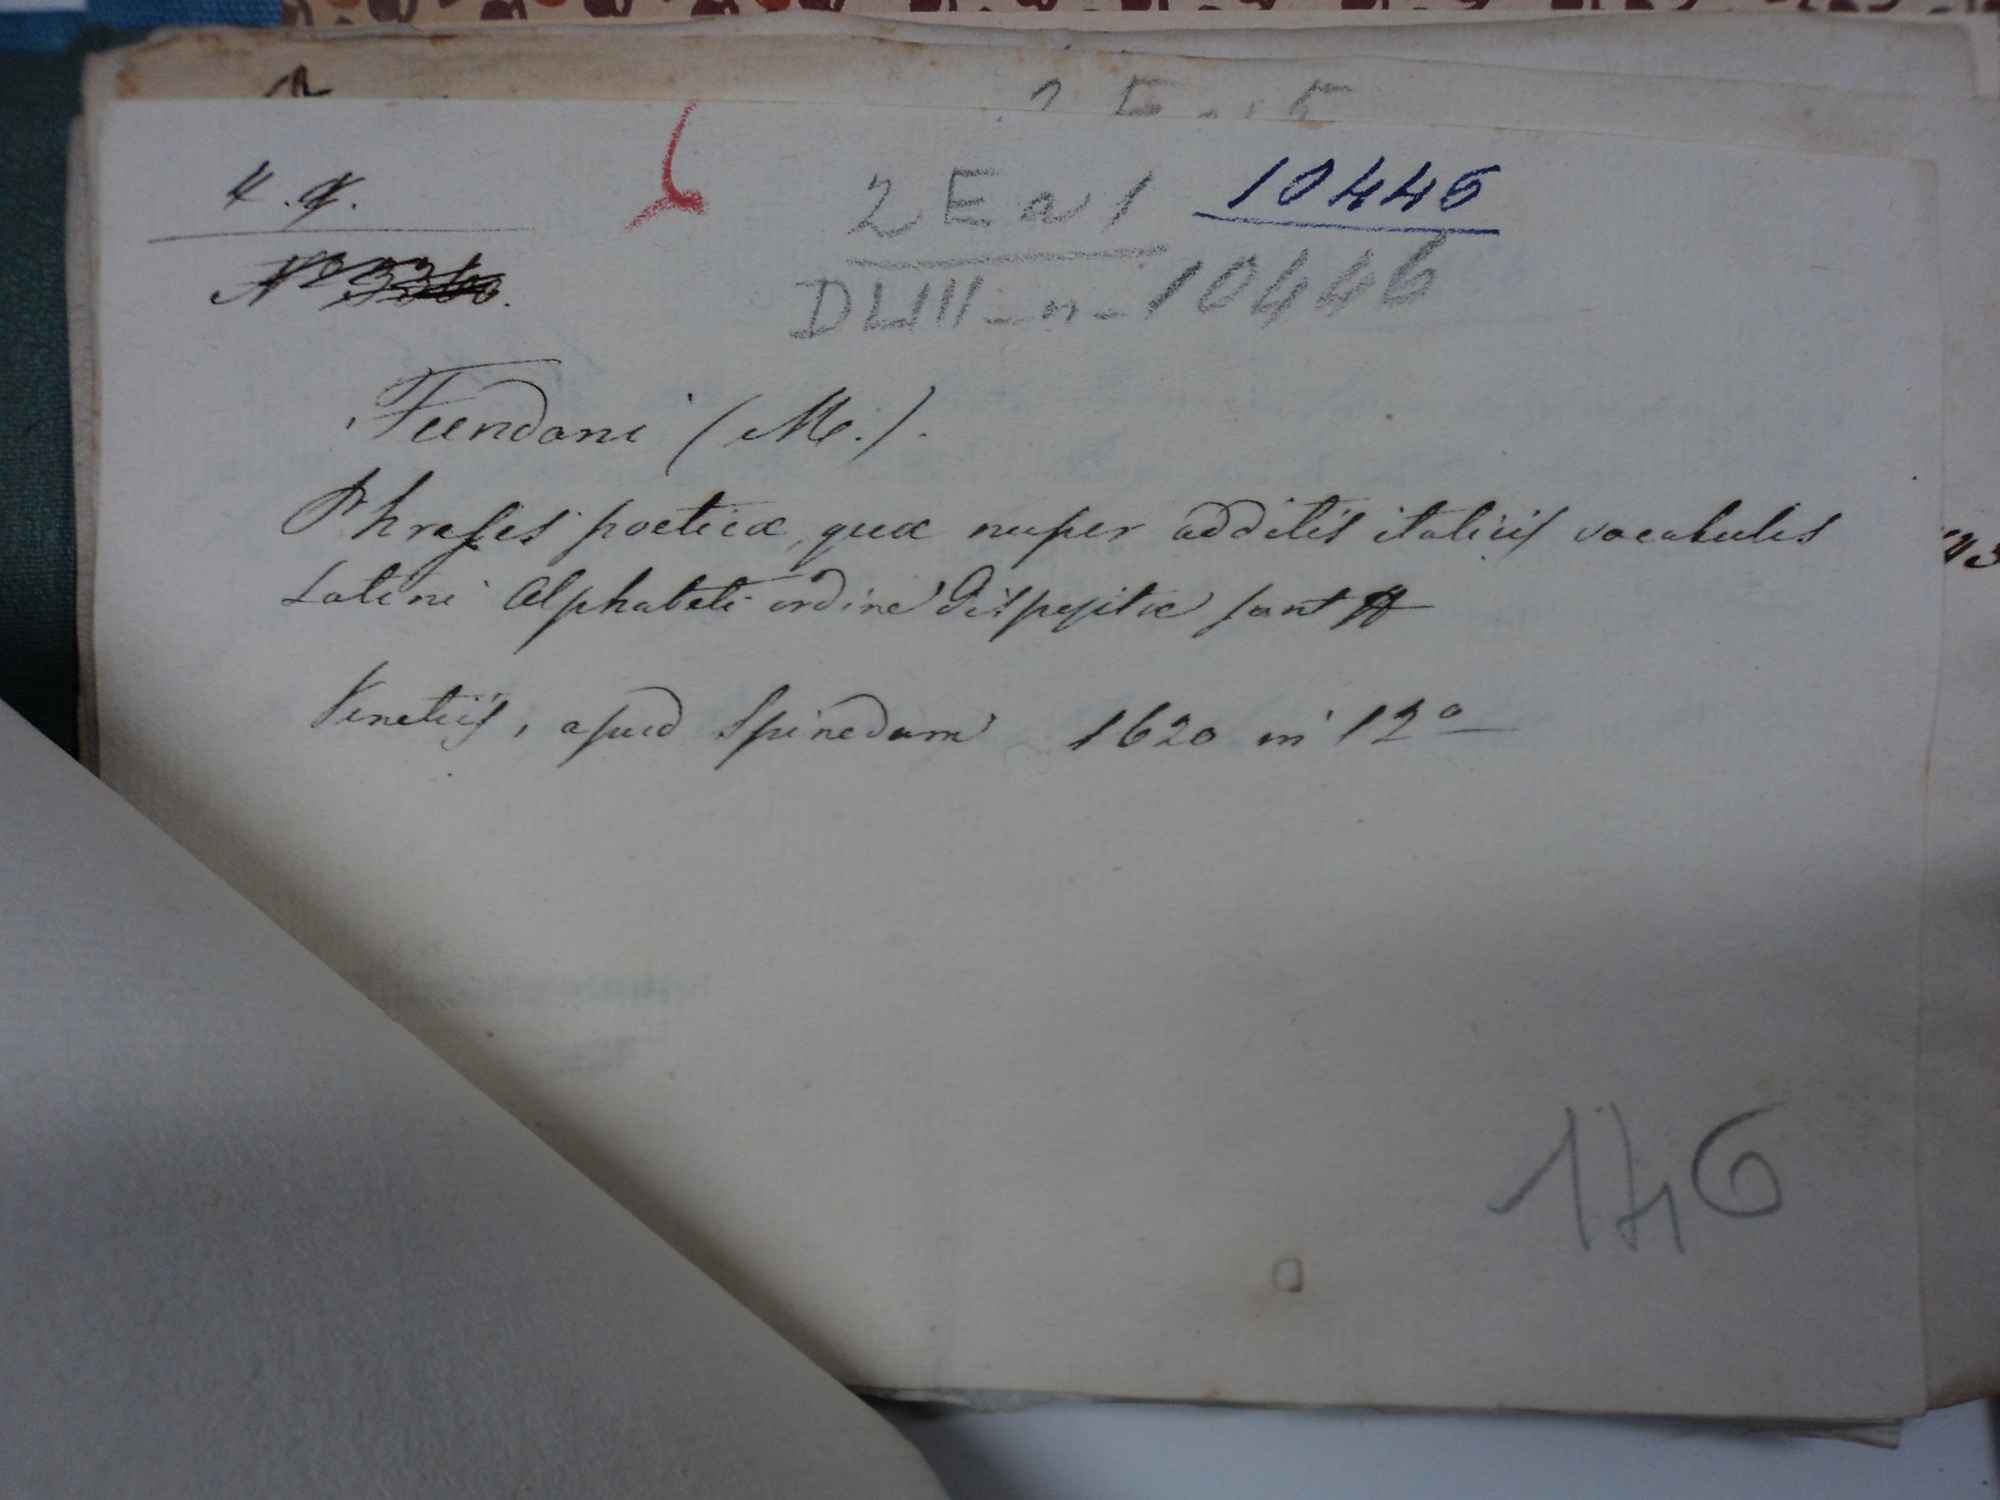 4. 9.
2 E a 1
10445
DLIII - n - 10446
Fundani (M.).
Phrases poeticæ, quæ nuper additis italicis vocabulis
Latini Alphabeti ordine dispositæ sunt
Venetiis, apud Spinedam 1620 in 12º
146